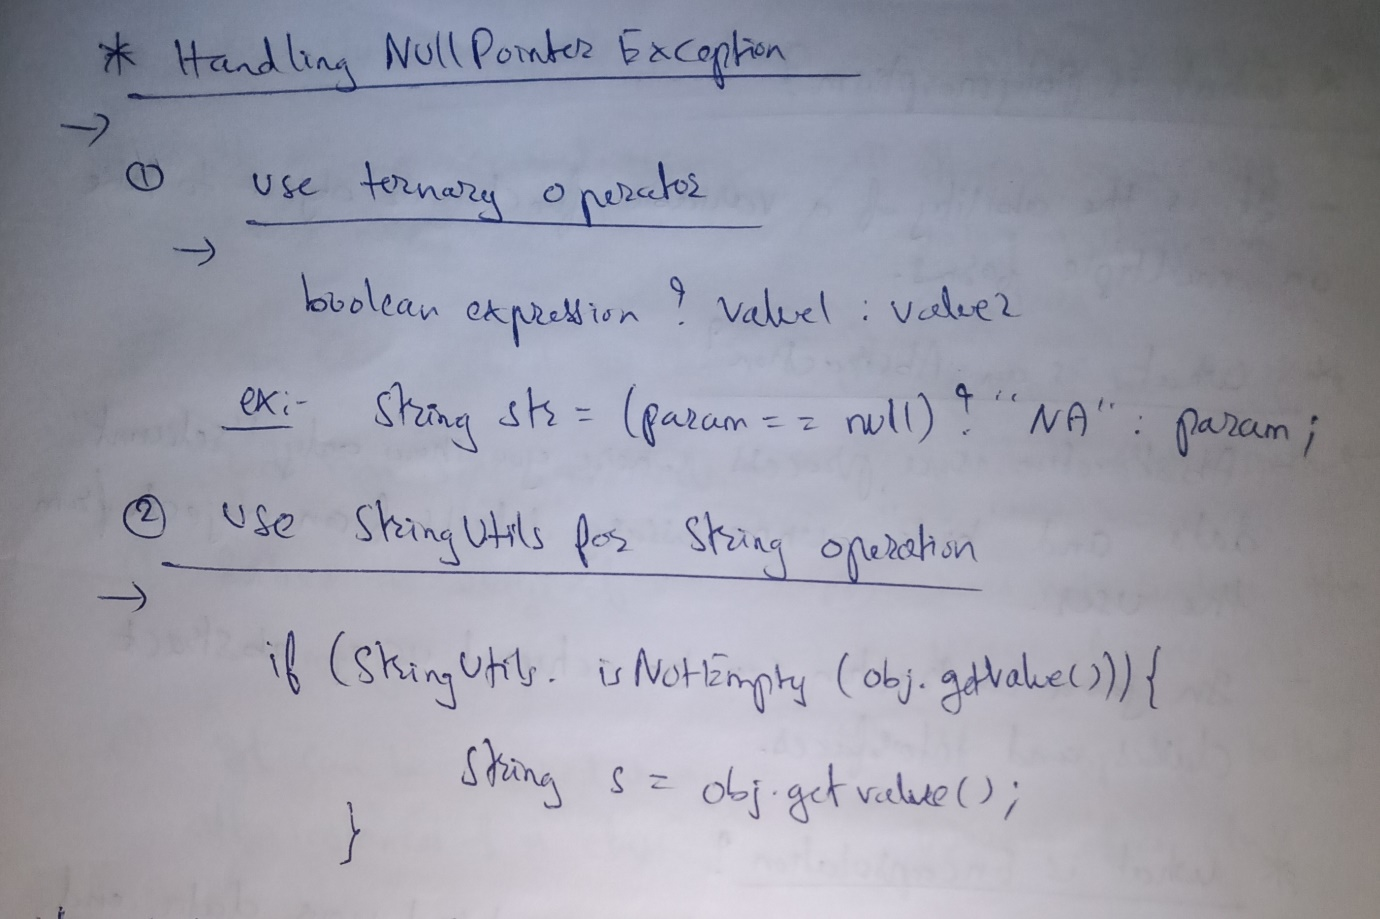 * Handling NullPointer Exception
→
① use ternary operator
→
boolean expression ? value1 : value2
ex:- String str = (param == null) ? "NA" : param;
② use StringUtils for String operation
→
if (StringUtils. isNotEmpty (obj. getValue())) {
String s = obj.getvalue();
}